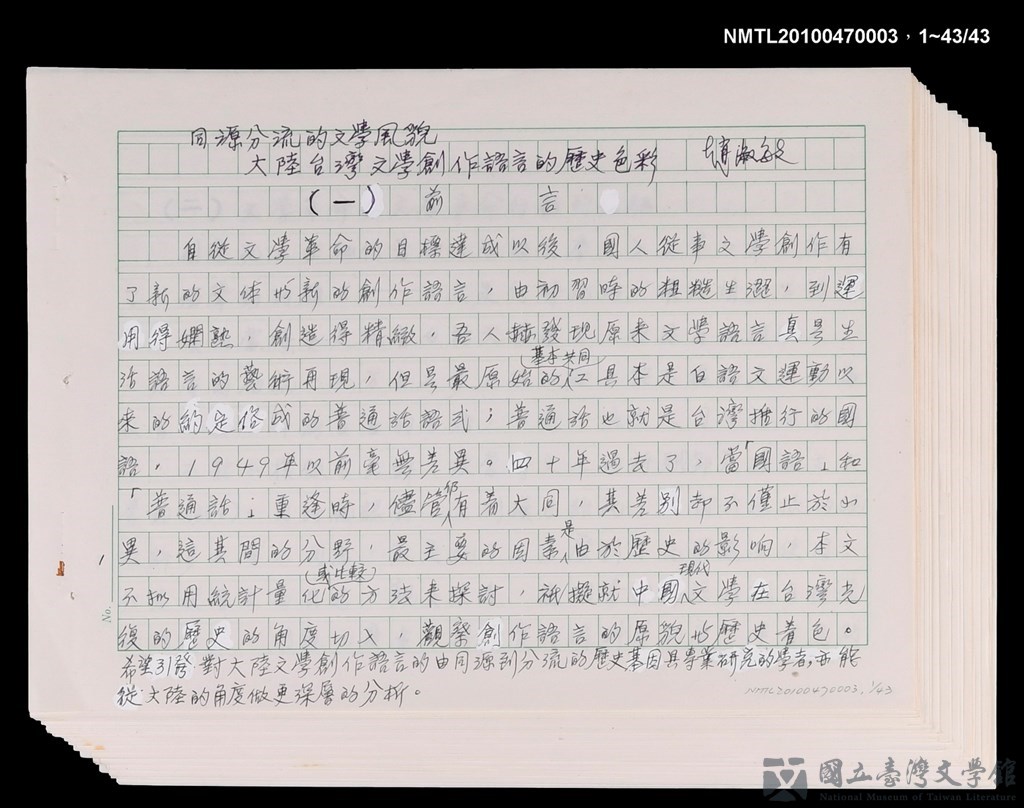 NMTL20100470003，1~43/43
同源分流的文學風貌
大陸台灣文學創作語言的歷史色彩 淑敏
(一) 前言
自從文學革命的目標達成以後，國人從事文學創作有
了新的文体与新的創作語言，由初習時的粗糙生澀，到運
用得嫻熟，創造得精緻，吾人赫發現原来文學語言真是生
活語言的藝術再現，但是最原始的(基本共同)工具本是白語文運動以
来的約定俗成的普通話語式；普通話也就是台灣推行的國
語，1949年以前毫無差異。四十年過去了，當「國語」和
「普通話」重逢時，儘管仍有着大同，其差別却不僅止於小
異，這其間的分野，最主要的因素是由於歷史的影响，本文
不拟用統計量化(或比較)的方法来探討，祇擬就中國現代文學在台灣光
復的歷史的角度切入，觀察創作語言的原貌与歷史着色。
希望引發對大陸文學創作語言的由同源到分流的歷史基因具專業研究的學者，亦能
從大陸的角度做更深層的分析。
No.
NMTL20100470003, 1/43
國立臺灣文學館
National Museum of Taiwan Literature